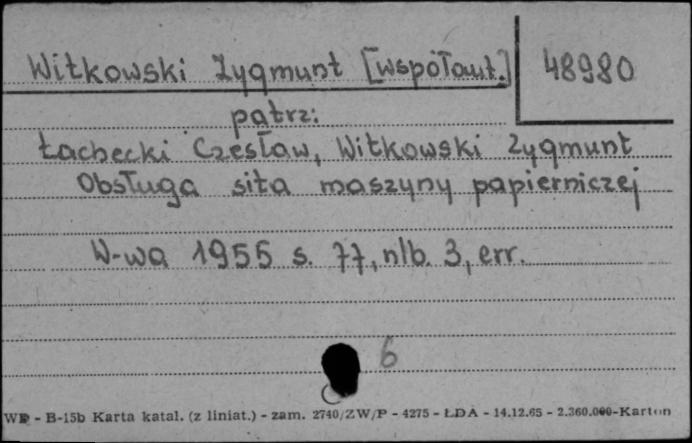 Witkowski Zygmunt [współaut.] 48980
patrz:
Łachecki Czesław, Witkowski Zygmunt
Obsługa sita maszyny papierniczej
W-wa 1955 s. 77, nlb. 3, err.
6
WP - B-15b Karta katal. (z liniat.) - zam. 2740/ZW/P - 4275 - ŁDA - 14.12.65 - 2.360.000-Karton